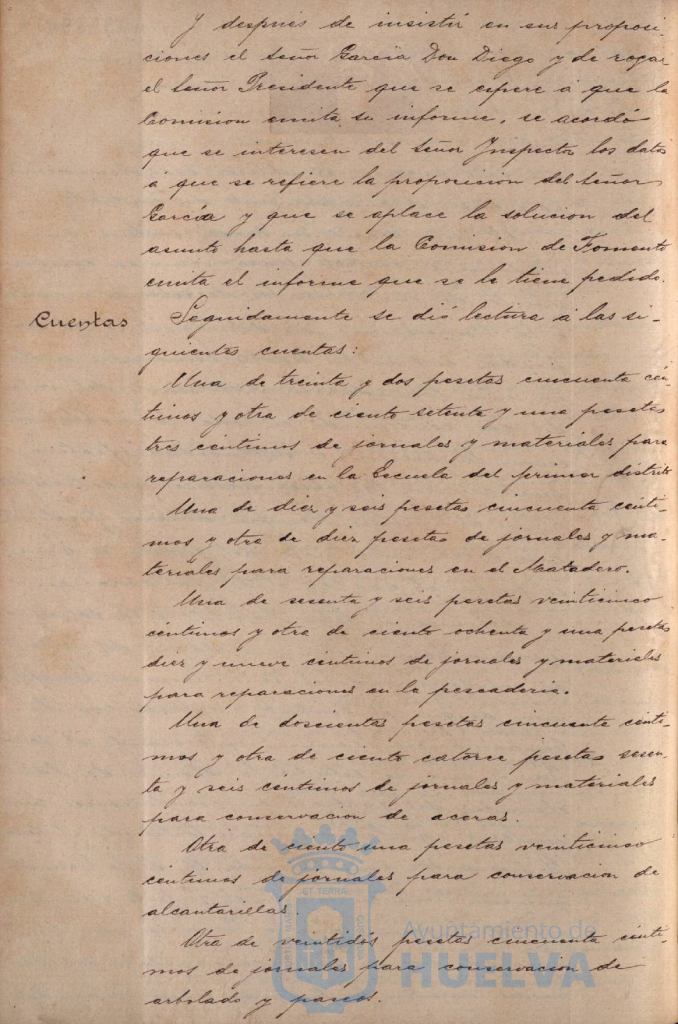 Y despues de insistir en sus proposi-
ciones el Señor García Don Diego y de rogar
el Señor Presidente que se espere á que la
Comision emita su informe, se acordó
que se interesen del Señor Inspector los datos
á que se refiere la proposicion del Señor
García y que se aplace la solucion del
asunto hasta que la Comision de Fomento
emita el informe que se le tiene pedido.
Cuentas
Seguidamente se dió lectura á las si-
guientes cuentas:
Una de treinta y dos pesetas cincuenta cén-
timos y otra de ciento setenta y una pesetas
tres céntimos de jornales y materiales para
reparaciones en la Escuela del primer distrito
Una de diez y seis pesetas cincuenta cénti-
mos y otra de diez pesetas de jornales y ma-
teriales para reparaciones en el Matadero.
Una de sesenta y seis pesetas veinticinco
céntimos y otra de ciento ochenta y una pesetas
diez y nueve céntimos de jornales y materiales
para reparaciones en la pescaderia.
Una de doscientas pesetas cincuenta cénti-
mos y otra de ciento catorce pesetas sesen-
ta y seis céntimos de jornales y materiales
para conservacion de aceras.
Otra de ciento una pesetas veinticinco
céntimos de jornales para conservacion de
alcantarillas.
Otra de veintidós pesetas cincuenta cénti-
mos de jornales para conservacion de
arbolado y paseos.
ET TERRA
Ayuntamiento de
HUELVA